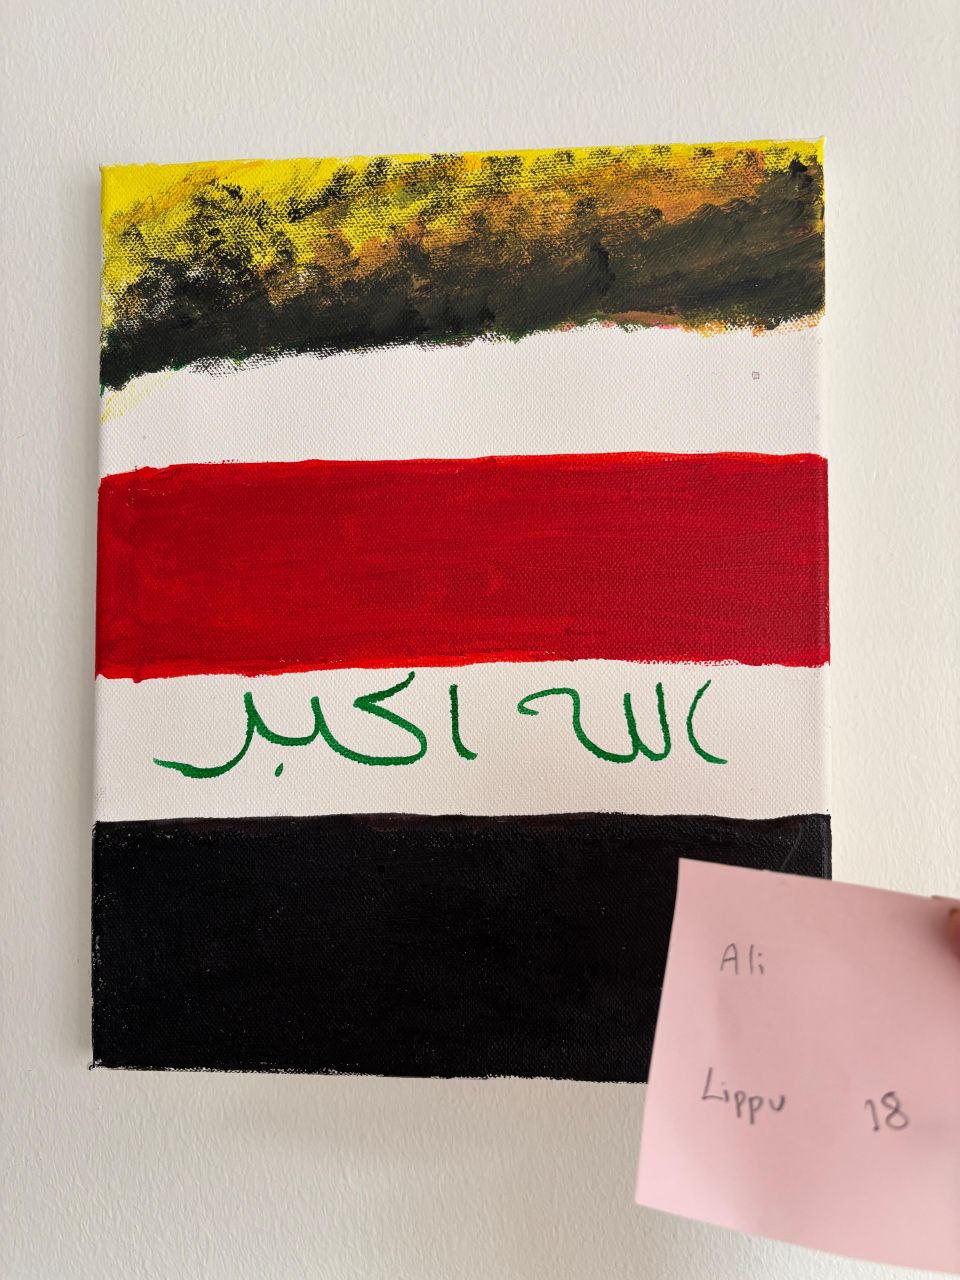 الله اكبر
Ali
Lippu 18